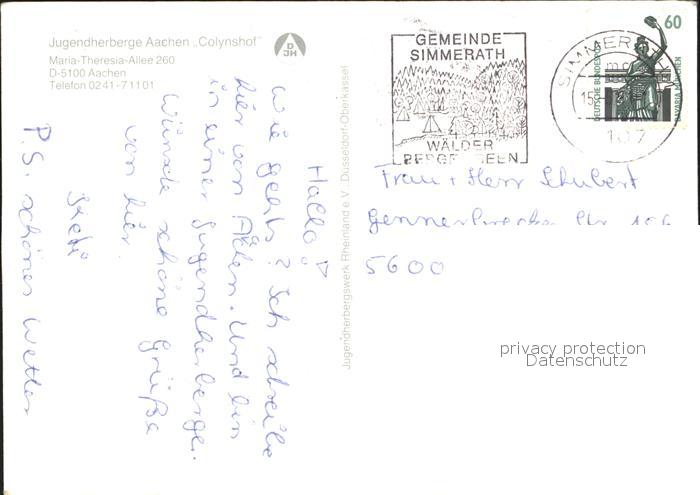 Jugendherberge Aachen „Colynshof"
Maria-Theresia-Allee 260
D-5100 Aachen
Telefon 02 41 - 7 11 01
DJH
Jugendherbergswerk Rheinland e.V. Düsseldorf-Oberkassel
GEMEINDE
SIMMERATH
WÄLDER
BERGE SEEN
SIMMERATH
DEUTSCHE BUNDESPOST
60
BAVARIA MÜNCHEN
Hallo!
Wie geehts? Ich schreibe
hier von Aachen. Und bin
in einer Jugendherberge.
Wünsche schöne Grüße
von hier.
P.S. schönes Wetter
Frau + Herr Schubert
5600
privacy protection
Datenschutz